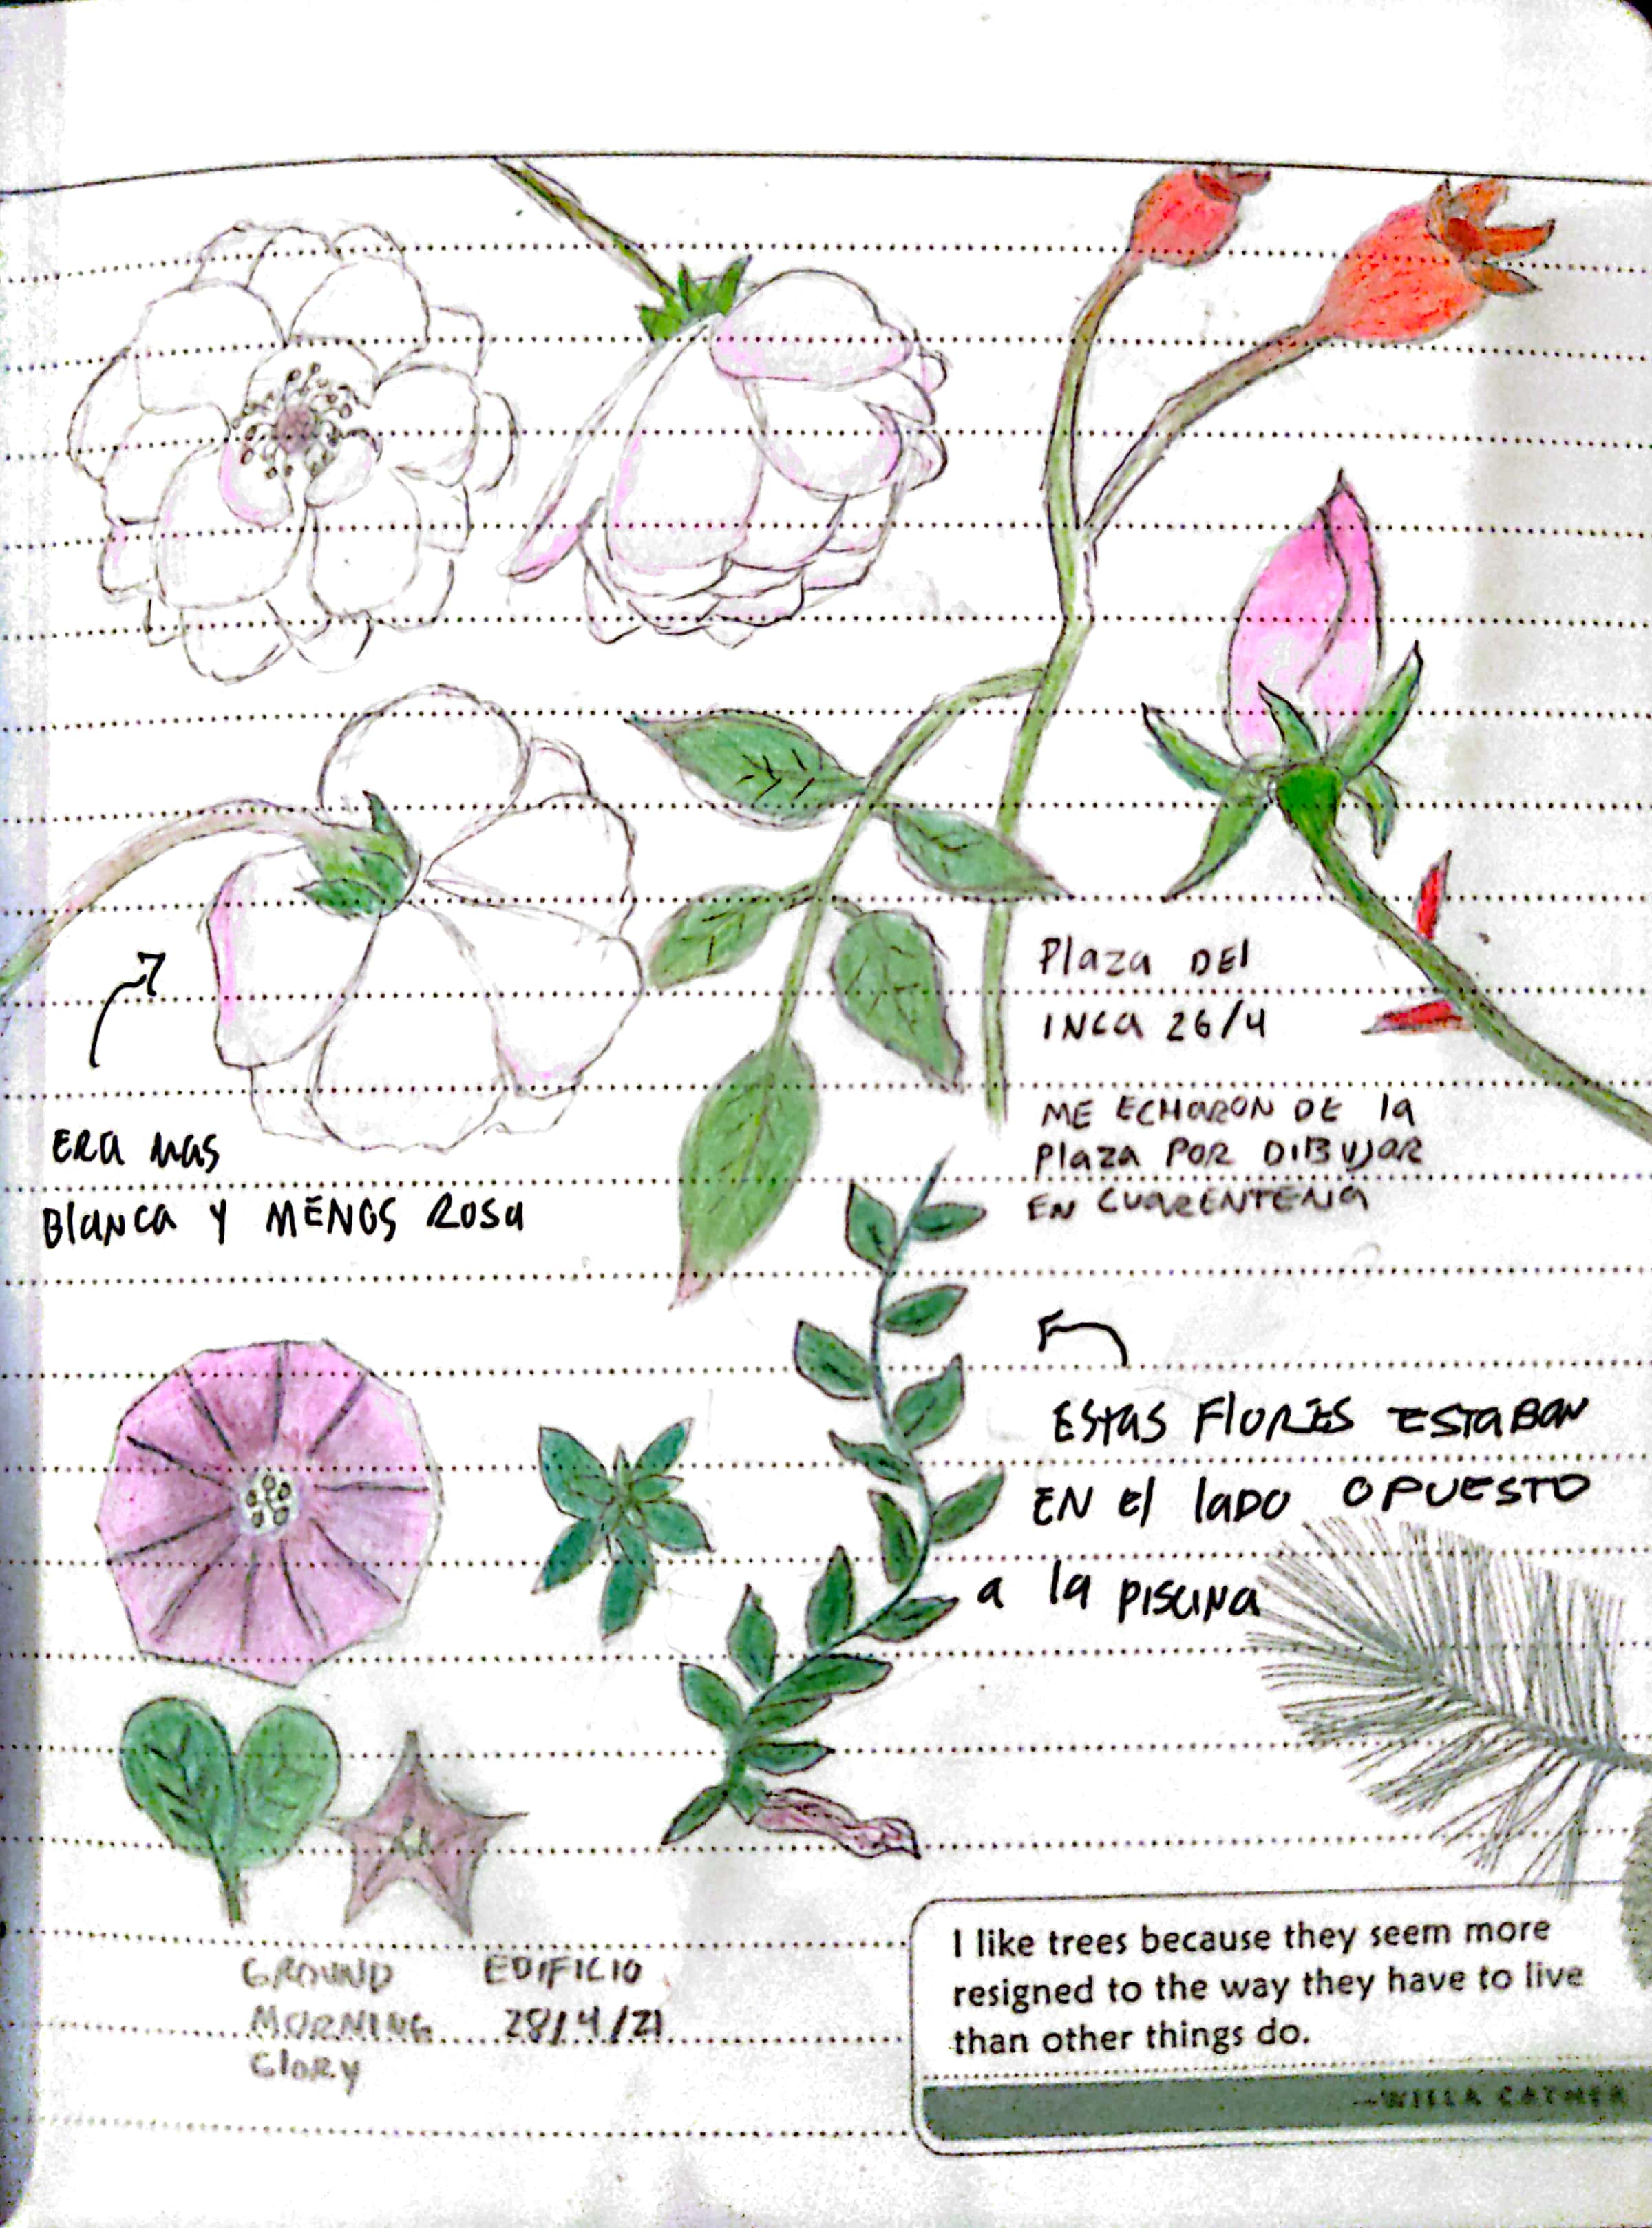 Plaza DEl
INCa 26/4
ME ECHARON DE la
Plaza POR DIBUJAR
EN CUARENTENA
ERA MAS
BlaNCa Y MENOS ROSa
EStaS FlORES ESTaBaN
EN El laDO OPUESTO
a la PISCINa
GROUND
MORNING
GlORY
EDIFICIO
28/4/21
I like trees because they seem more
resigned to the way they have to live
than other things do.
—WILLA CATHER